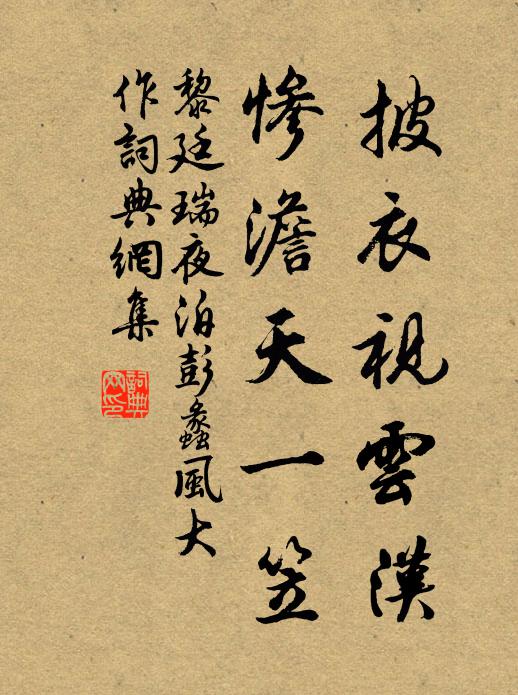 披衣視雲漢
慘澹天一笠
黎廷瑞夜泊彭蠡風大
作詞典網集
詞典
网印